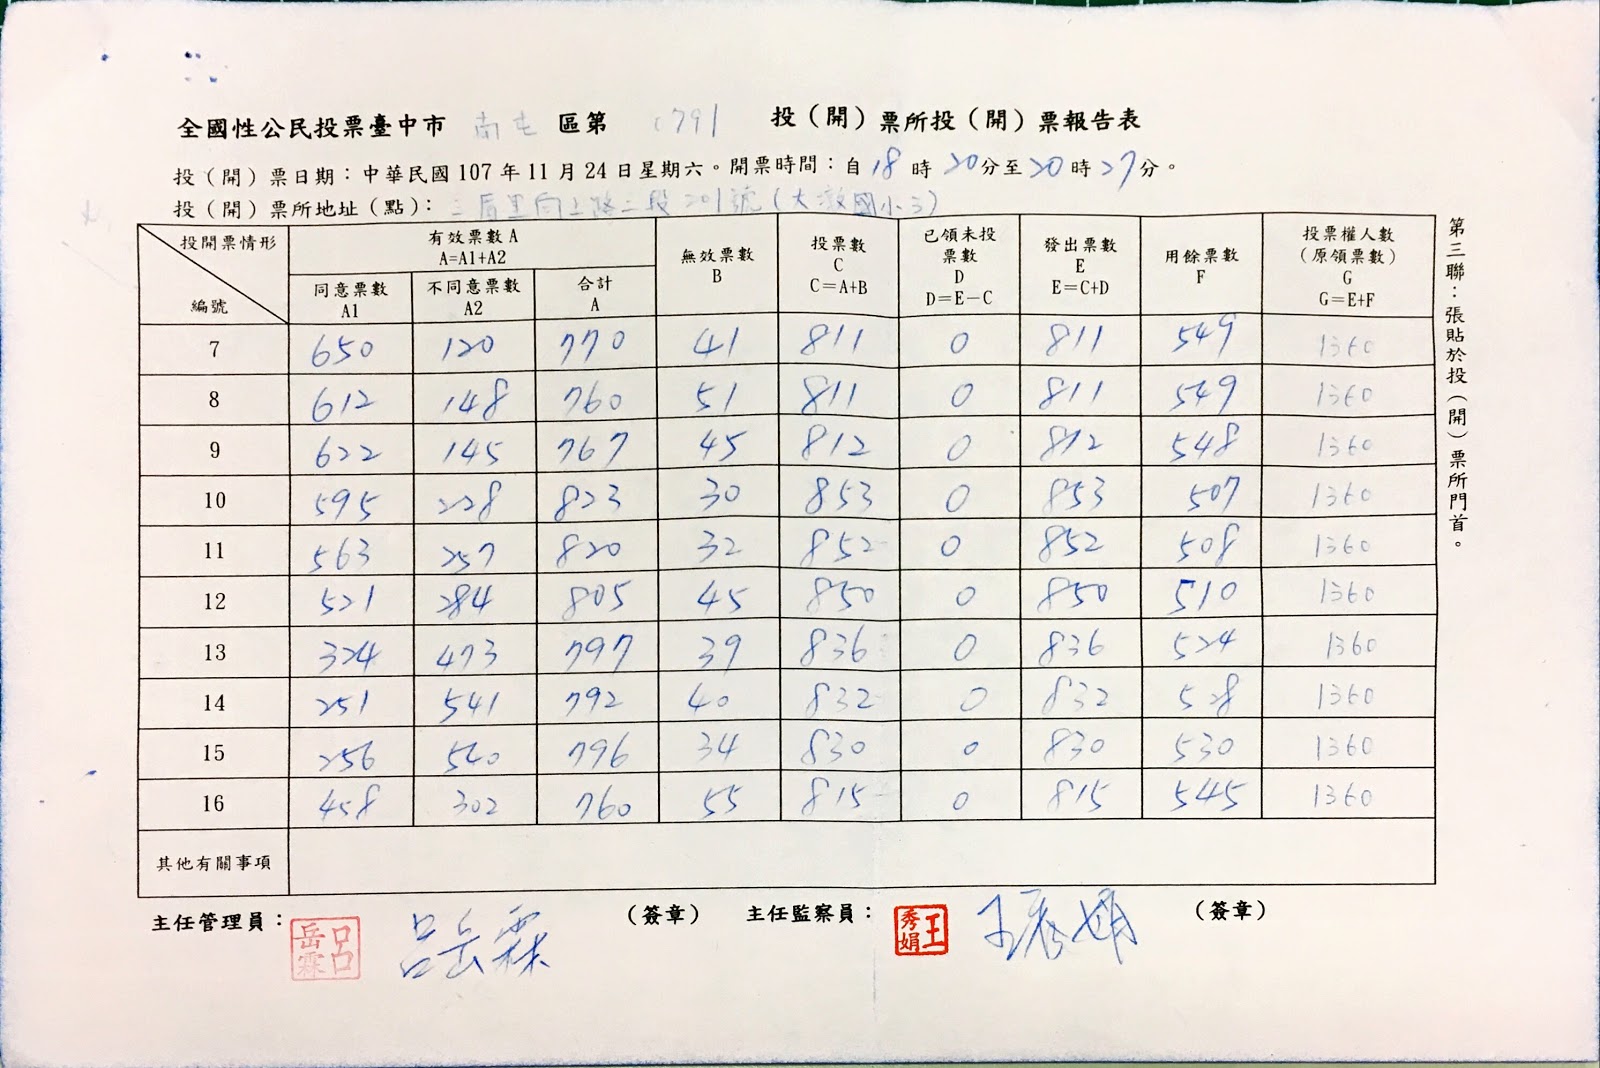 全國性公民投票臺中市 南屯 區第 0791 投（開）票所投（開）票報告表
投（開）票日期：中華民國107年11月24日星期六。開票時間：自18時20分至20時27分。
投（開）票所地址（點）：三厝里向上路二段201號（大墩國小3）
投開票情形 編號 有效票數A A=A1+A2 無效票數 B 投票數 C C＝A+B 已領未投票數 D D＝E－C 發出票數 E E=C+D 用餘票數 F 投票權人數（原領票數） G G=E+F
同意票數 A1 不同意票數 A2 合計 A
7 650 120 770 41 811 0 811 549 1360
8 612 148 760 51 811 0 811 549 1360
9 622 145 767 45 812 0 812 548 1360
10 595 228 823 30 853 0 853 507 1360
11 563 257 820 32 852 0 852 508 1360
12 521 284 805 45 850 0 850 510 1360
13 324 473 797 39 836 0 836 524 1360
14 251 541 792 40 832 0 832 528 1360
15 256 540 796 34 830 0 830 530 1360
16 458 302 760 55 815 0 815 545 1360
其他有關事項
主任管理員： 呂岳霖 呂岳霖 （簽章） 主任監察員： 王秀娟 王秀娟 （簽章）
第三聯：張貼於投（開）票所門首。